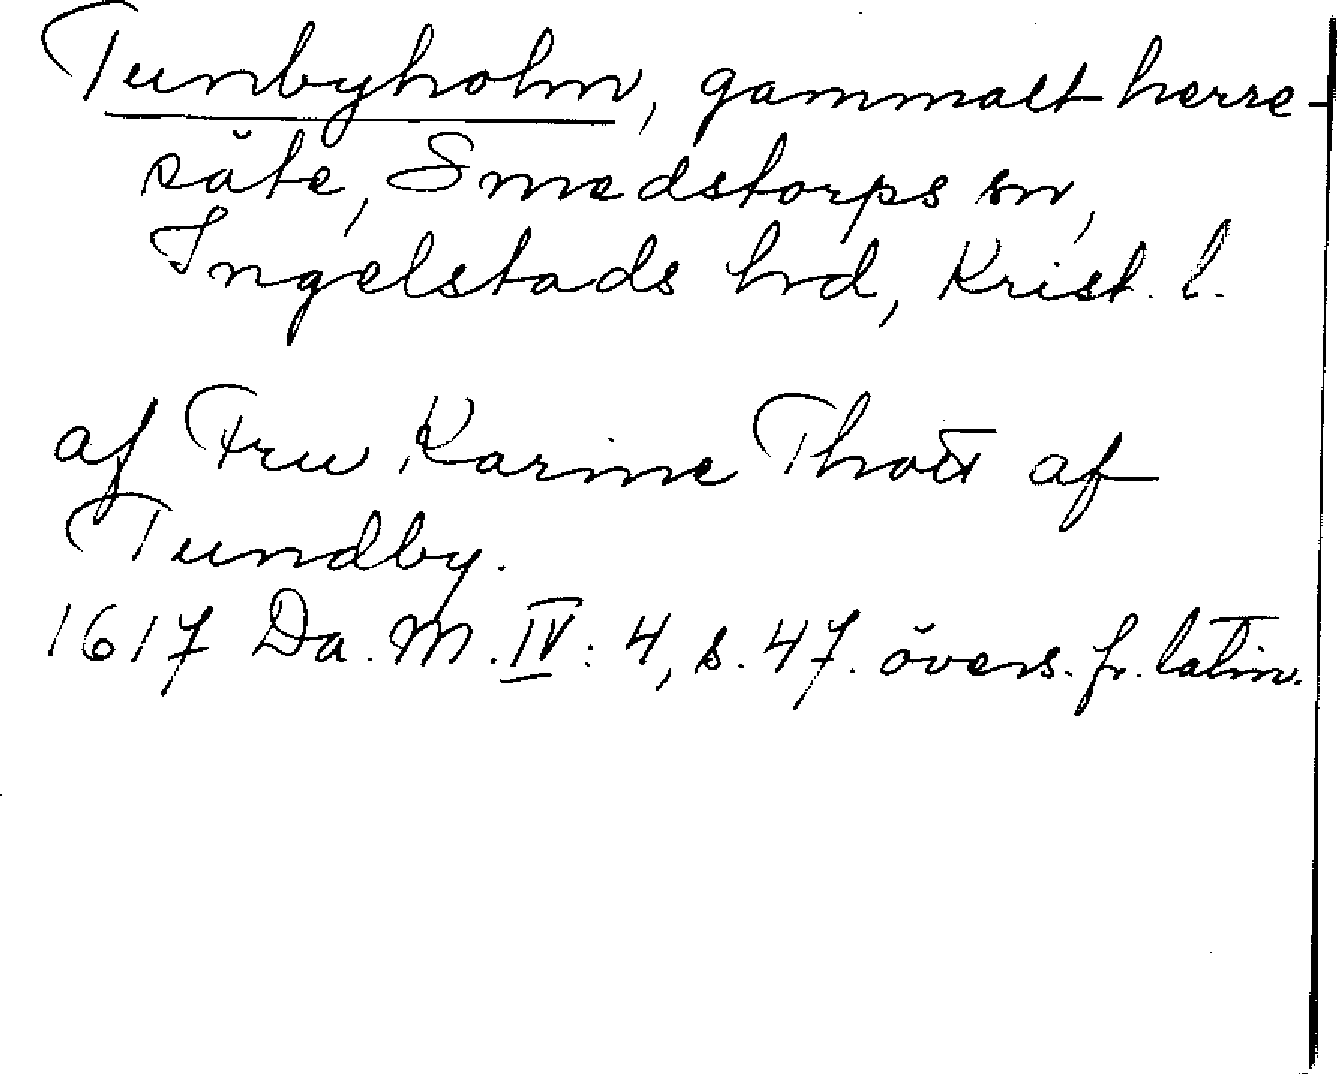 Tunbyholm, gammalt herre-
säte, Smedstorps sn,
Ingelstads hrd, Krist. l.
af Fru Karine Thott af
Tundby.
1617 Da. M. IV: 4, s. 47. övers. fr. latin.